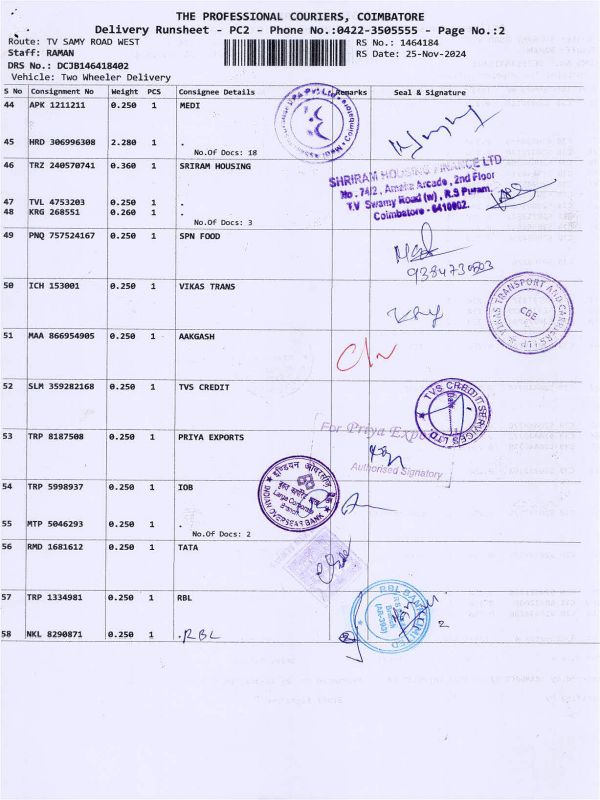 THE PROFESSIONAL COURIERS, COIMBATORE
Delivery Runsheet - PC2 - Phone No.:0422-3505555 - Page No.:2
Route: TV SAMY ROAD WEST RS No.: 1464184
Staff: RAMAN RS Date: 25-Nov-2024
DRS No.: DCJB146418402
Vehicle: Two Wheeler Delivery
S No Consignment No Weight PCS Consignee Details Remarks Seal & Signature
44 APK 1211211 0.250 1 MEDI
45 HRD 306996308 2.280 1 .
No.Of Docs: 18
46 TRZ 240570741 0.360 1 SRIRAM HOUSING
SHRIRAM HOUSING FINANCE LTD
No. 74/2, Amsha Arcade, 2nd Floor
T.V Swamy Road (w), R.S Puram,
Coimbatore - 641002.
47 TVL 4753203 0.250 1 .
48 KRG 268551 0.260 1 .
No.Of Docs: 3
49 PNQ 757524167 0.250 1 SPN FOOD
50 ICH 153001 0.250 1 VIKAS TRANS
VIKAS TRANSPORT AND CARRIERS LLP
CBE
51 MAA 866954905 0.250 1 AAKGASH
52 SLM 359282168 0.250 1 TVS CREDIT
TVS CREDIT SERVICES LTD.
For Priya Exports
53 TRP 8187508 0.250 1 PRIYA EXPORTS
Authorised Signatory
54 TRP 5998937 0.250 1 IOB
इण्डियन ओवरसीज़ बैंक
Large Corporate
Branch
INDIAN OVERSEAS BANK
55 MTP 5046293 0.250 1 .
No.Of Docs: 2
56 RMD 1681612 0.250 1 TATA
57 TRP 1334981 0.250 1 RBL
RBL BANK LIMITED
Branch
2
58 NKL 8290871 0.250 1 .RBL